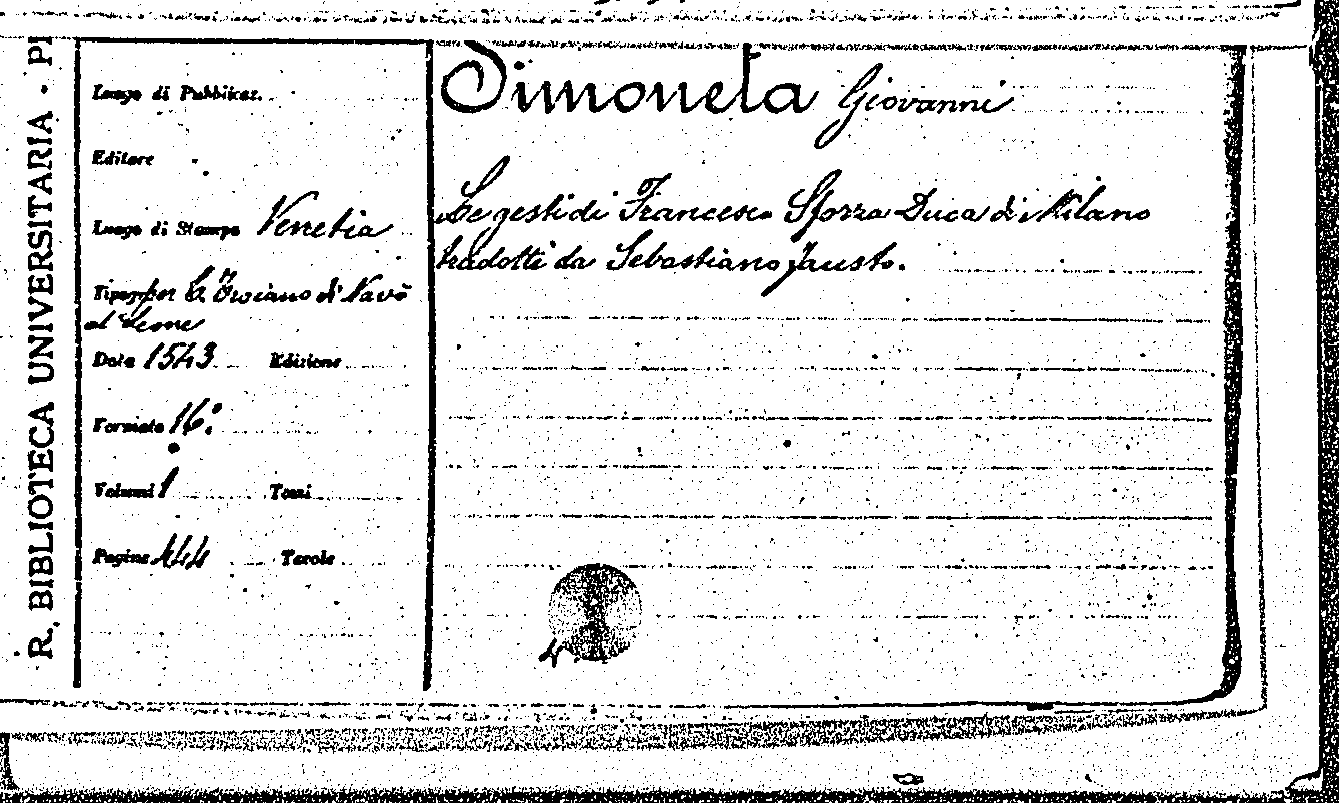 R. BIBLIOTECA UNIVERSITARIA - PI
Luogo di Pubblicaz.
Editore
Luogo di Stampa Venetia
Tipogr. per C. Troiano di Navò
al Leone
Data 1543 Edizione
Formato 16º
Volumi 1 Tomi
Pagine 444 Tavole
Simoneta Giovanni
Le gesti di Francesco Sforza Duca di Milano
tradotti da Sebastiano Fausto.